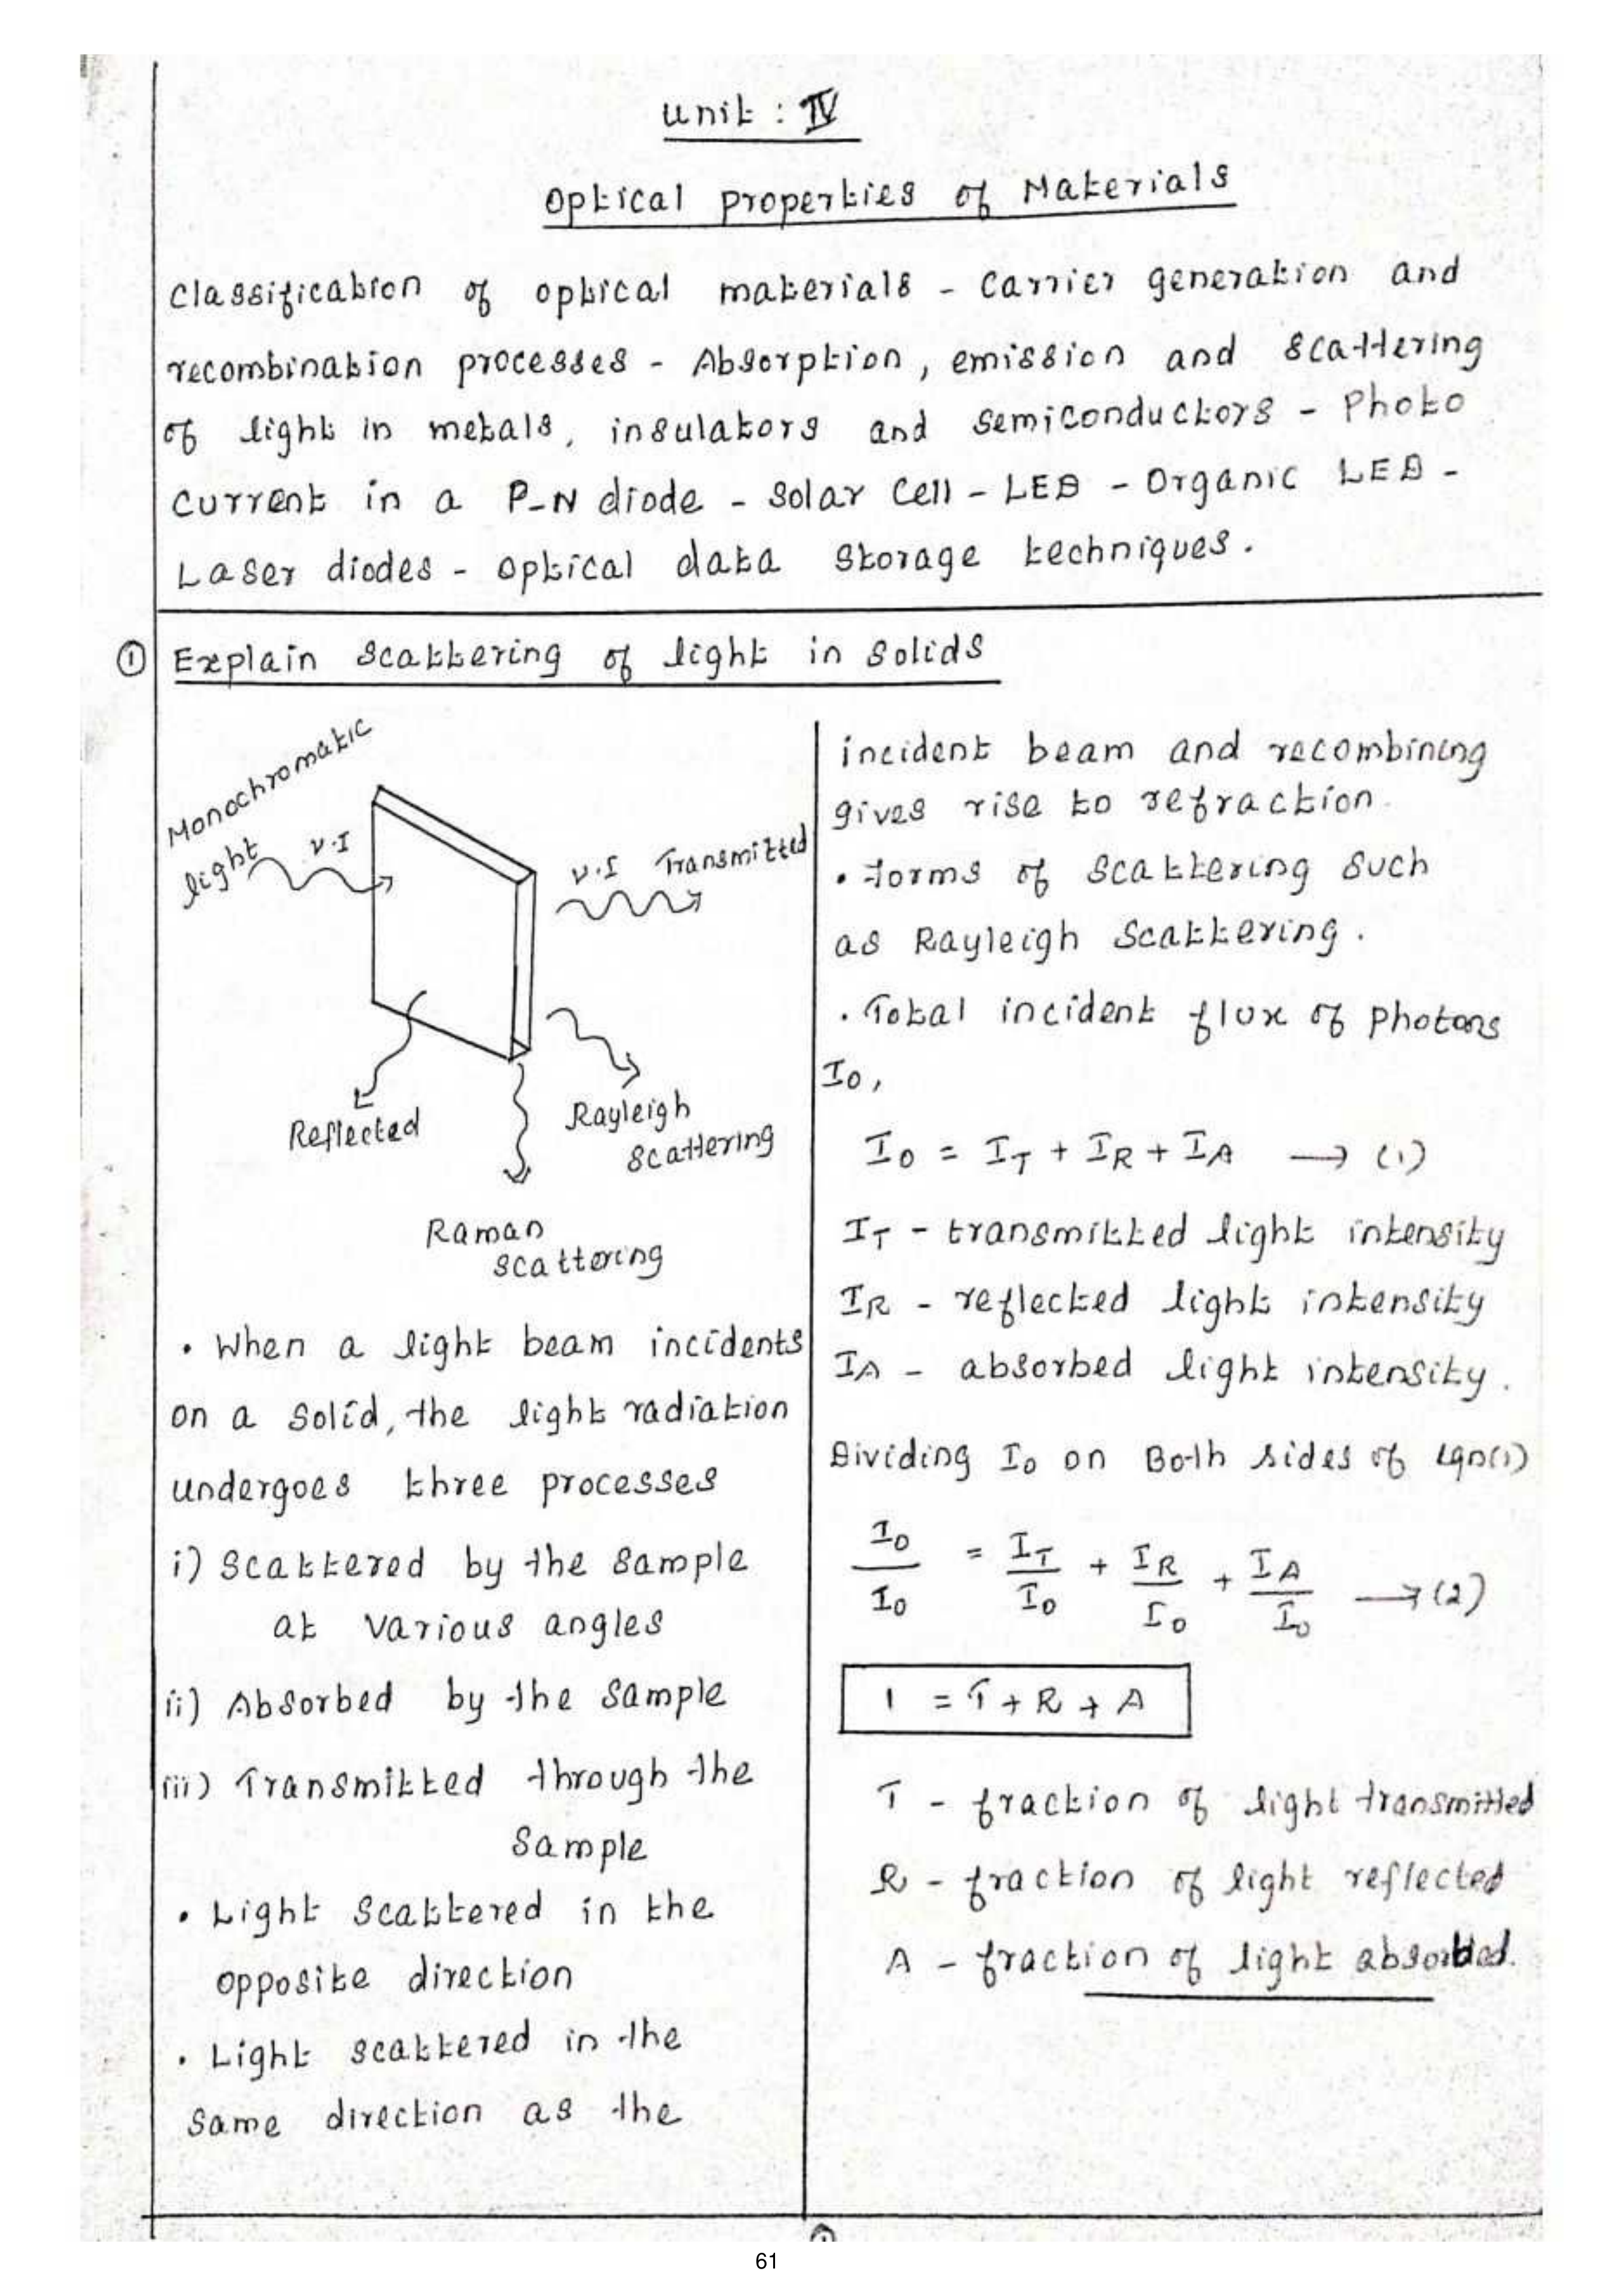 Unit : IV
Optical properties of Materials
Classification of optical materials - Carrier generation and
recombination processes - Absorption, emission and scattering
of light in metals, insulators and semiconductors - Photo
current in a P-N diode - Solar cell - LED - Organic LED -
Laser diodes - optical data storage techniques.
① Explain scattering of light in solids
Monochromatic
light
ν.I
ν.I Transmitted
Reflected
Rayleigh
scattering
Raman
scattering
• When a light beam incidents
on a solid, the light radiation
undergoes three processes
i) Scattered by the sample
at various angles
ii) Absorbed by the sample
iii) Transmitted through the
sample
• Light scattered in the
opposite direction
• Light scattered in the
same direction as the
incident beam and recombining
gives rise to refraction.
• forms of scattering such
as Rayleigh scattering.
• Total incident flux of photons
I₀,
I₀ = I_T + I_R + I_A → (1)
I_T - transmitted light intensity
I_R - reflected light intensity
I_A - absorbed light intensity.
Dividing I₀ on Both sides of eqn(1)
I₀/I₀ = I_T/I₀ + I_R/I₀ + I_A/I₀ → (2)
1 = T + R + A
T - fraction of light transmitted
R - fraction of light reflected
A - fraction of light absorbed.
61